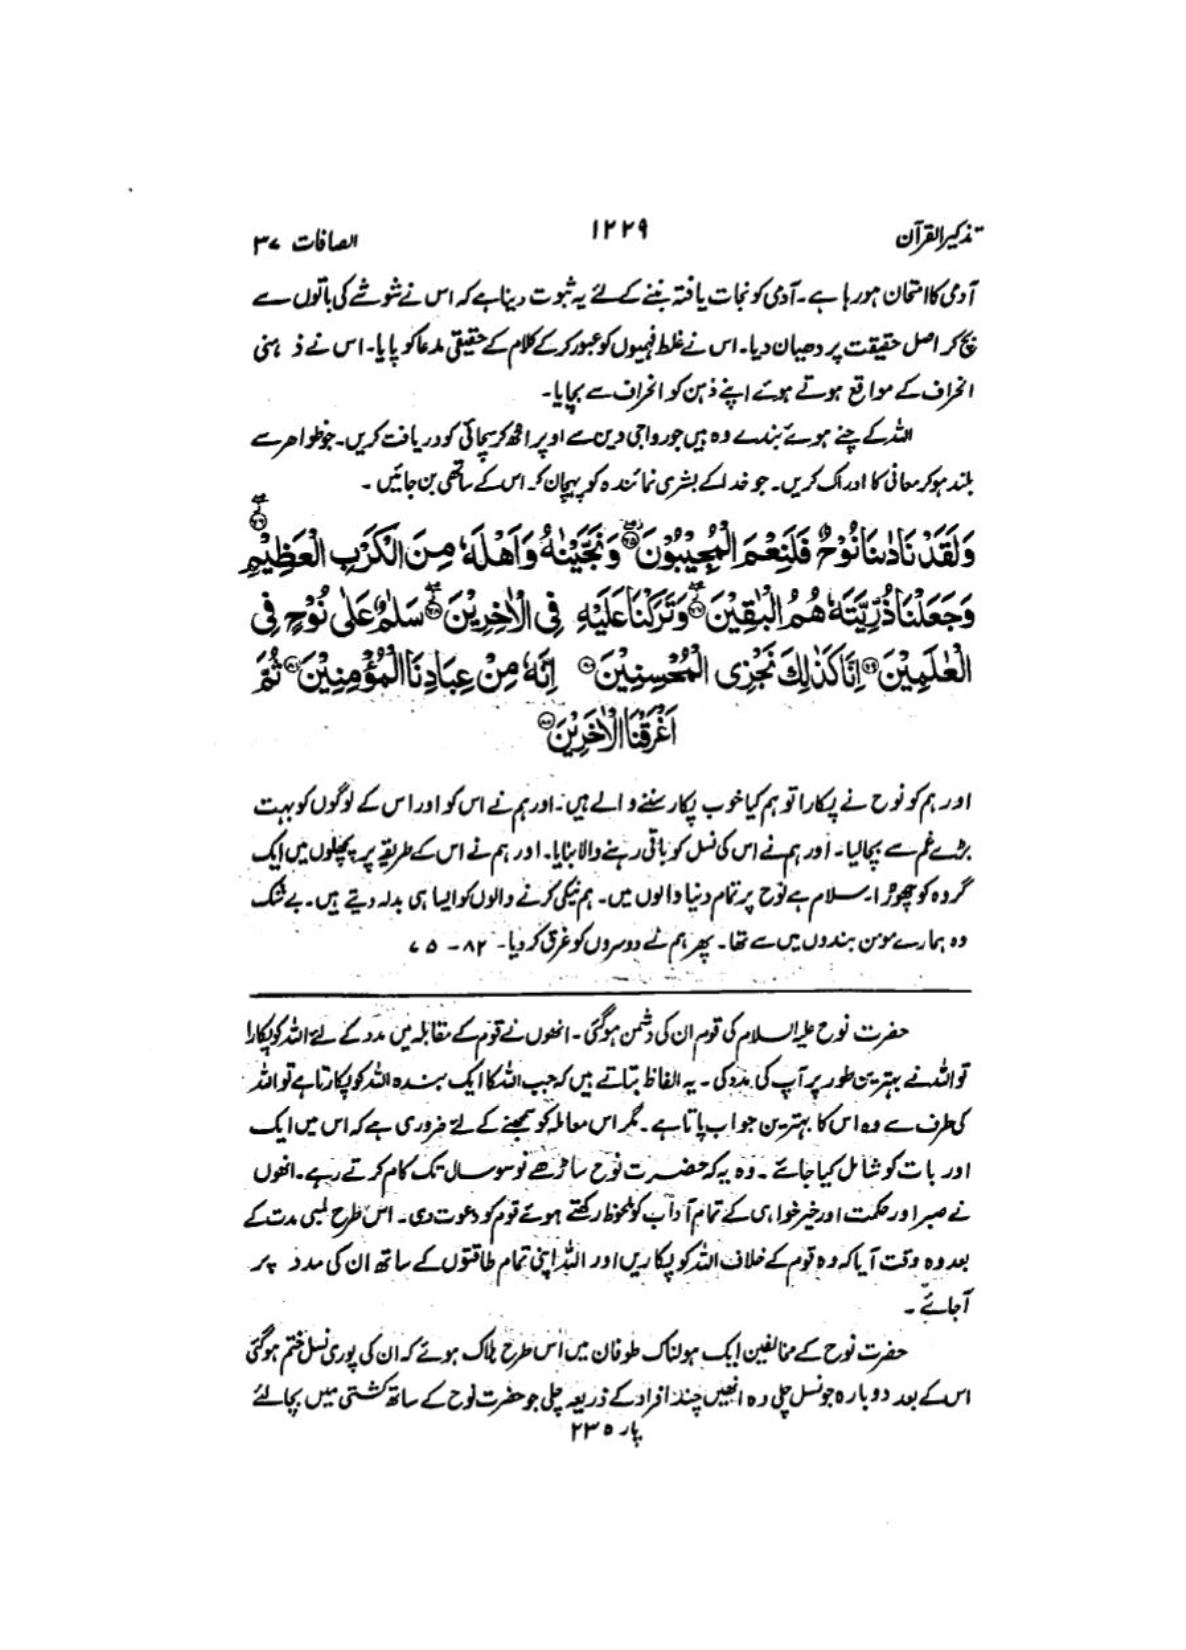 تذکیر القرآن ۱۲۲۹ الصافات ۳۷
آدمی کا امتحان ہو رہا ہے۔ آدمی کو نجات یافتہ بننے کے لئے یہ ثبوت دینا ہے کہ اس نے شوشے کی باتوں سے
بچ کر اصل حقیقت پر دھیان دیا۔ اس نے غلط فہمیوں کو عبور کر کے کلام کے حقیقی مدعا کو پایا۔ اس نے ذہنی
انحراف کے مواقع ہوتے ہوئے اپنے ذہن کو انحراف سے بچایا۔
اللہ کے چنے ہوئے بندے وہ ہیں جو رواجی دین سے اوپر اٹھ کر سچائی کو دریافت کریں۔ جو ظواہر سے
بلند ہو کر معانی کا ادراک کریں۔ جو خدا کے بشری نمائندہ کو پہچان کر اس کے ساتھی بن جائیں۔
وَلَقَدْ نَادٰىنَا نُوْحٌ فَلَنِعْمَ الْمُجِيْبُوْنَ ۝۷۵ وَنَجَّيْنٰهُ وَاَهْلَهٗ مِنَ الْكَرْبِ الْعَظِيْمِ ۝۷۶
وَجَعَلْنَا ذُرِّيَّتَهٗ هُمُ الْبٰقِيْنَ ۝۷۷ وَتَرَكْنَا عَلَيْهِ فِى الْاٰخِرِيْنَ ۝۷۸ سَلٰمٌ عَلٰى نُوْحٍ فِى
الْعٰلَمِيْنَ ۝۷۹ اِنَّا كَذٰلِكَ نَجْزِى الْمُحْسِنِيْنَ ۝۸۰ اِنَّهٗ مِنْ عِبَادِنَا الْمُؤْمِنِيْنَ ۝۸۱ ثُمَّ
اَغْرَقْنَا الْاٰخَرِيْنَ ۝۸۲
اور ہم کو نوح نے پکارا تو ہم کیا خوب پکار سننے والے ہیں۔ اور ہم نے اس کو اور اس کے لوگوں کو بہت
بڑے غم سے بچا لیا۔ اور ہم نے اس کی نسل کو باقی رہنے والا بنایا۔ اور ہم نے اس کے طریقے پر پچھلوں میں ایک
گروہ کو چھوڑا۔ سلام ہے نوح پر تمام دنیا والوں میں۔ ہم نیکی کرنے والوں کو ایسا ہی بدلہ دیتے ہیں۔ بے شک
وہ ہمارے مومن بندوں میں سے تھا۔ پھر ہم نے دوسروں کو غرق کر دیا۔ ۸۲-۷۵
حضرت نوح علیہ السلام کی قوم ان کی دشمن ہو گئی۔ انھوں نے قوم کے مقابلہ میں مدد کے لئے اللہ کو پکارا
تو اللہ نے بہترین طور پر آپ کی مدد کی۔ یہ الفاظ بتاتے ہیں کہ جب اللہ کا ایک بندہ اللہ کو پکارتا ہے تو اللہ
کی طرف سے وہ اس کا بہترین جواب پاتا ہے۔ مگر اس معاملہ کو سمجھنے کے لئے ضروری ہے کہ اس میں ایک
اور بات کو شامل کیا جائے۔ وہ یہ کہ حضرت نوح ساڑھے نو سو سال تک کام کرتے رہے۔ انھوں
نے صبر اور حکمت اور خیر خواہی کے تمام آداب کو ملحوظ رکھتے ہوئے قوم کو دعوت دی۔ اس طرح لمبی مدت کے
بعد وہ وقت آیا کہ وہ قوم کے خلاف اللہ کو پکاریں اور اللہ اپنی تمام طاقتوں کے ساتھ ان کی مدد پر
آجائے۔
حضرت نوح کے مخالفین ایک ہولناک طوفان میں اس طرح ہلاک ہوئے کہ ان کی پوری نسل ختم ہو گئی
اس کے بعد دوبارہ جو نسل چلی وہ انھیں چند افراد کے ذریعہ چلی جو حضرت نوح کے ساتھ کشتی میں بچا لئے
پارہ ۲۳